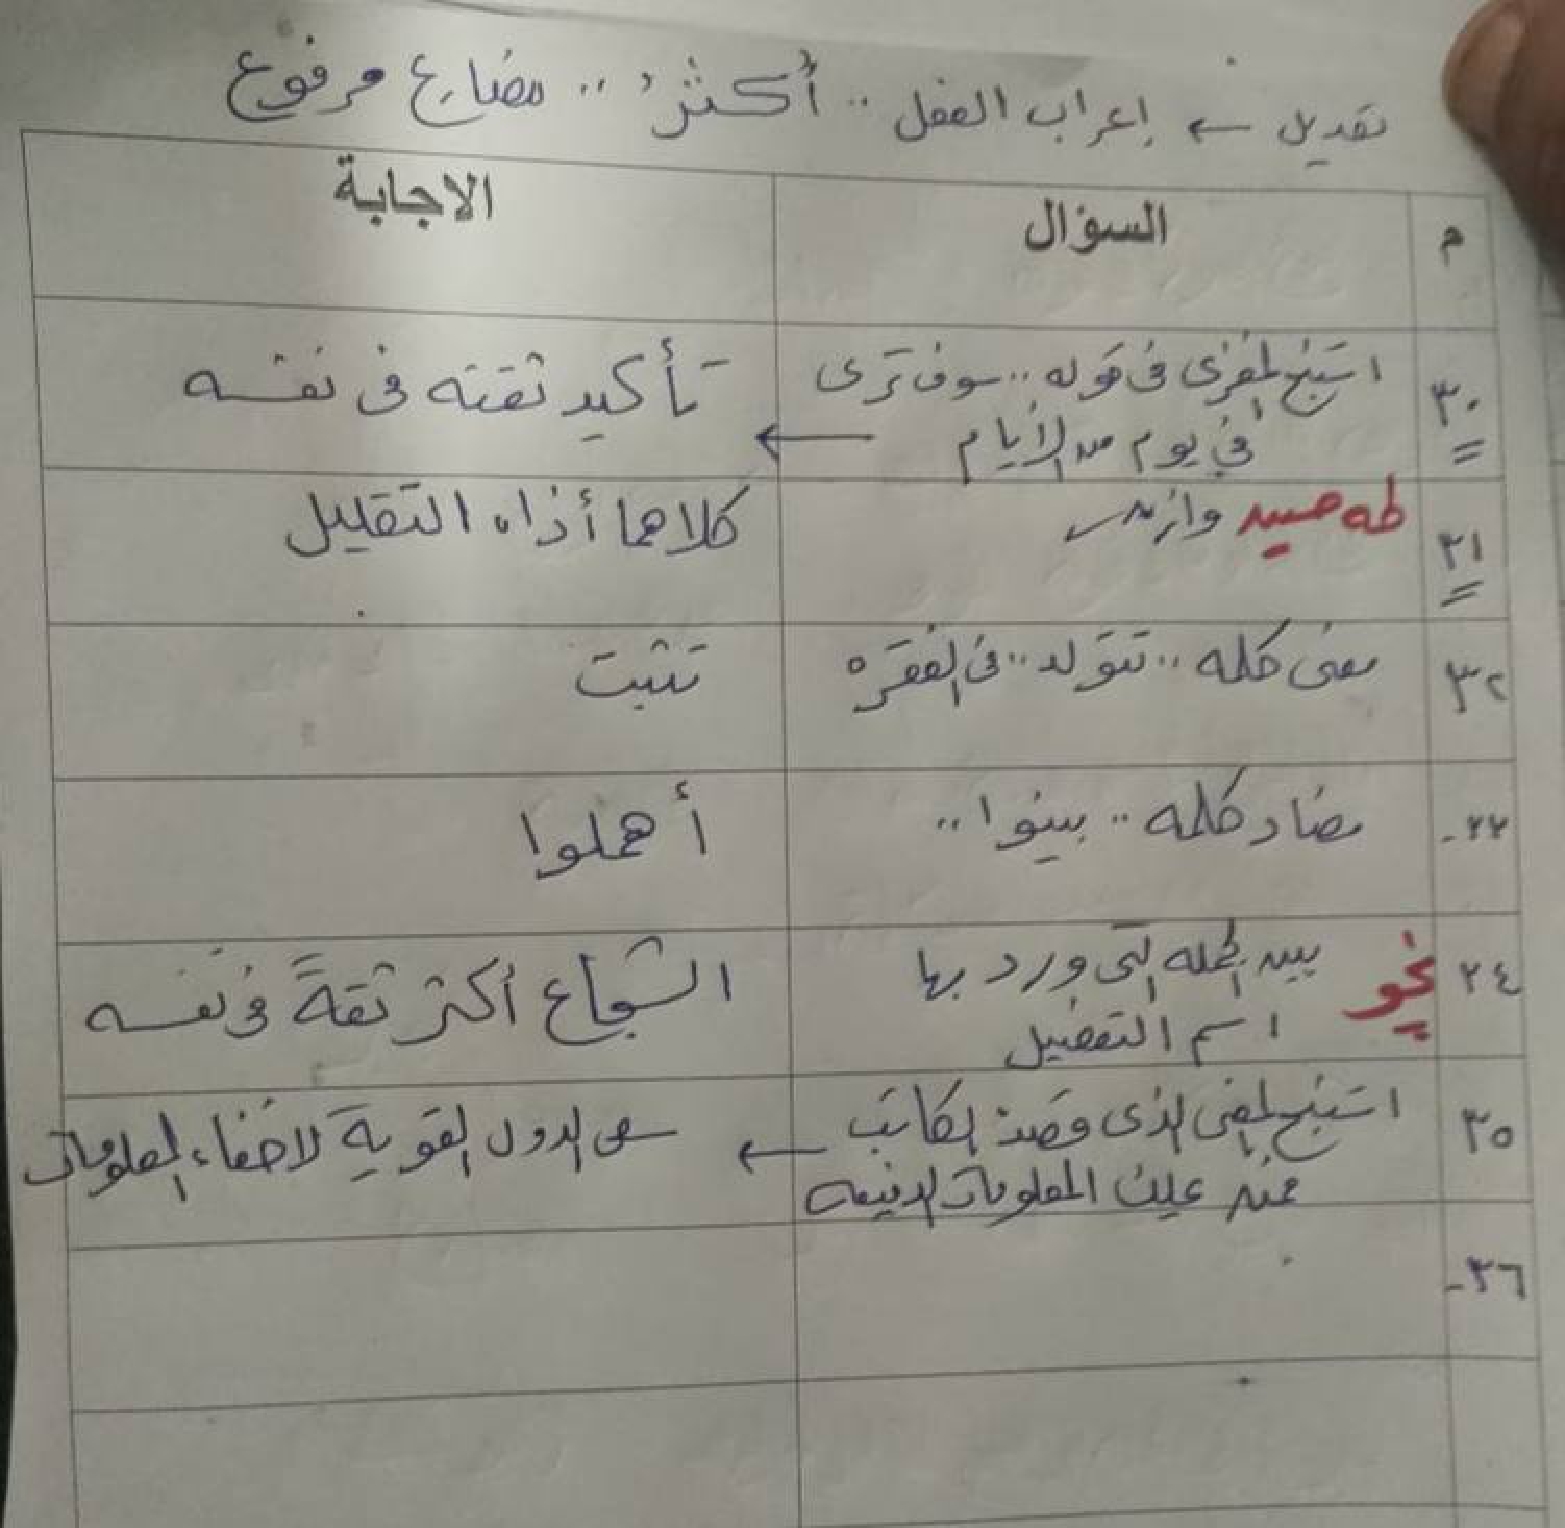 تعديل ← إعراب الفعل .. أكثرُ .. مضارع مرفوع
م السؤال الاجابة
٣٠ استنتج المغزى فى قوله .. سوف ترى تأكيد ثقته فى نفسه
فى يوم من الأيام ←
٣١ طه حسين كلاهما أذاه التقليل
٣٢ معنى كلمه .. تتولد .. فى الفقره تثبت
٣٣- مضاد كلمه .. بينوا .. أهملوا
٣٤ نحو بين الجمله التى ورد بها الشجاع أكثر ثقةً فى نفسه
اسم التفضيل
٣٥ استنتج المعنى الذى قصده الكاتب ← سعى الدول القوية لاخفاء المعلومات
المعلومات
٣٦-